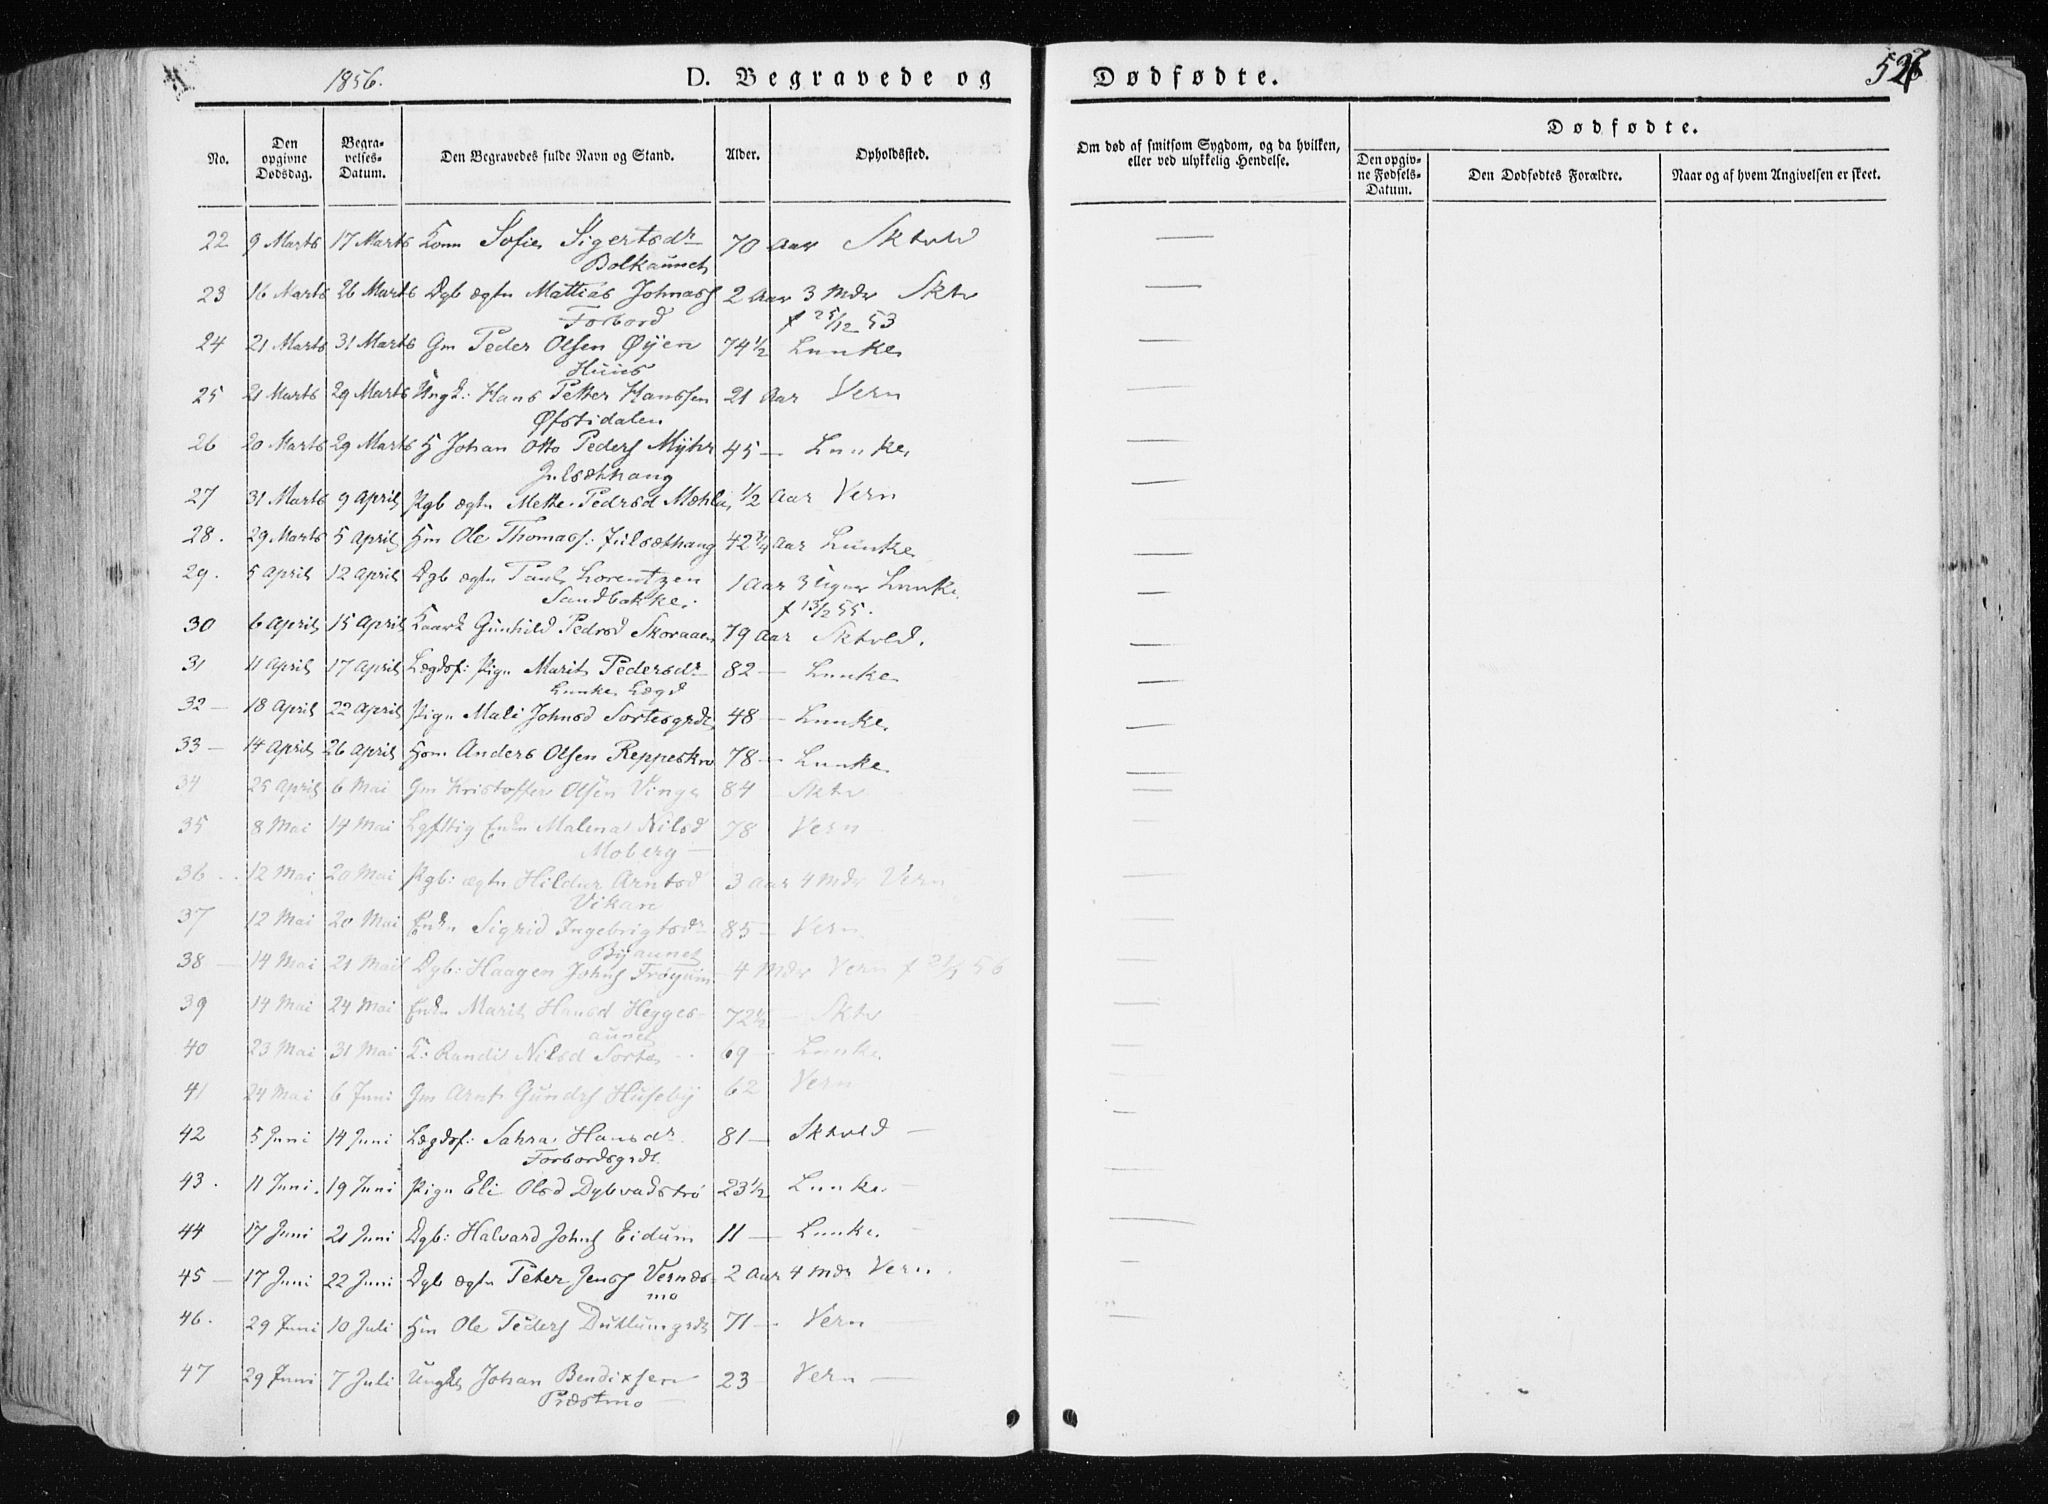 1856. D. Begravede og Dødfødte. 526
No. Den opgivne Dødsdag. Begravelses-Datum. Den Begravedes fulde Navn og Stand. Alder. Opholdssted.
Om død af smitsom Sygdom, og da hvilken, eller ved ulykkelig Hendelse.
Dødfødte.
Den opgivne Fødsels-Datum. Den Dødfødtes Forældre. Naar og af hvem Angivelsen er skeet.
22 9 Marts 17 Marts Konn Sofie Sigertsdr 70 Aar Sktvld
Bolkaunet
23 16 Marts 26 Marts Dgb ægtn Mattias Johnass 2 Aar 3 Mdr Sktv
Forbord f 25/12 53
24 21 Marts 31 Marts Gm Peder Olsen Øÿen 74 1/2 Lunke
Huus
25 21 Marts 29 Marts Ungk: Hans Petter Hanssen 21 Aar Vern
Øfstidalen
26 20 Marts 29 Marts H Johan Otto Peders Mÿhr 45 — Lunke
Julsæthhang
27 31 Marts 9 April Pgb ægtn Mette Pedrsd Mæhla 1/2 Aar Vern
28. 29 Marts 5 April Hm Ole Thomass: Julsæthang 42 3/4 Aar Lunke
29. 5 April 12 April Dgb ægtn Paul Lorentzen 1 Aar 3 Uger Lunke
Sandbakke f 13/2 55.
30 6 April 15 April Kaark Gunhild Pedrsd Skoraaen 79 Aar Sktvld.
31 11 April 17 April Lægdsf: Pign Marit Pedersdr 82 — Lunke
Lunke Lægd
32 — 18 April 22 April Pign Mali Johnsd Sortesgrdt 48 — Lunke
33 — 14 April 26 April Hom Anders Olsen Reppeskro 78 — Lunke
34 25 April 6 Mai Gm Kristoffer Olsen Vinge 84 Sktv
35 8 Mai 14 Mai Lgftig Enkn Malena Nilsd 78 Vern
Moberg —
36 12 Mai 20 Mai Pgb: ægtn Hildur Arntsd 3 Aar 4 Mdr Vern
Vikan
37 12 Mai 20 Mai Enkn Sigrid Ingebrigtsdr 85 — Vern
Bÿaunet
38 — 14 Mai 21 Mai Dgb: Haagen Johns Frøÿum 4 Mdr Vern f 21/1 56
39 14 Mai 24 Mai Enkn Marit Hansd Hegges- 72 1/2 — Sktv
aunet
40 23 Mai 31 Mai K: Randi Nilsd Sorte 69 Lunke
41 24 Mai 6 Juni Gm Arnt Gunds Husebÿ 62 Vern
42 5 Juni 14 Juni Lægdsf: Sahra Hansdr 81 — Sktvld —
Forbordsgrdt
43. 11 Juni. 19 Juni Pign Eli Olsd Dybvadstrø 23 1/2 Lunke —
44 17 Juni 21 Juni Dgb: Halvard Johns Eidum 11 — Lunke
45 — 17 Juni 22 Juni Dgb ægtn Peter Jenss Vernæs- 2 Aar 4 Mdr Vern
mo
46. 29 Juni 10 Juli Hm Ole Peders Duklumgrdt 71 — Vern
47 29 Juni 7 Juli Ungk Johan Bendixsen 23 Vern —
Præstmo